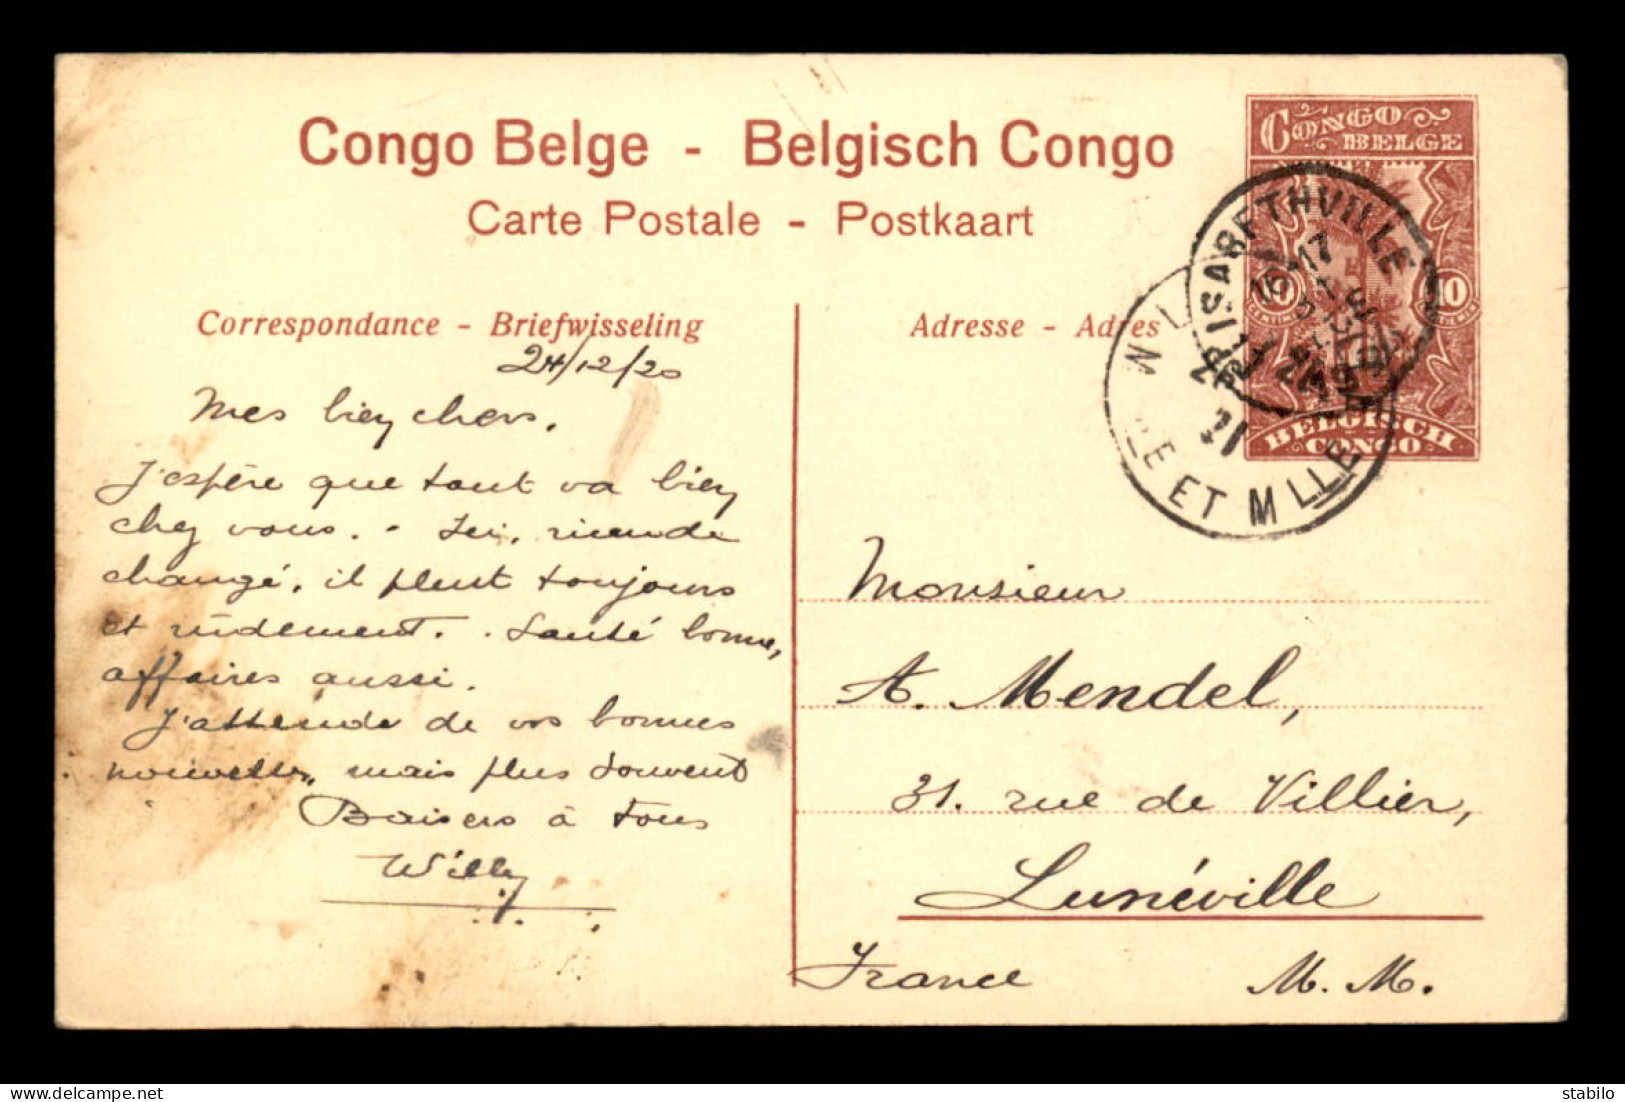 Congo Belge - Belgisch Congo
Carte Postale - Postkaart
Correspondance - Briefwisseling
Adresse - Adres
CONGO BELGE
10 10
BELGISCH CONGO
ELISABETHVILLE
16-17
LUNEVILLE
21
ET MLLE
24/12/20
Mes bien chers.
J'espère que tout va bien
chez vous. - Ici, rien de
changé, il pleut toujours
et rudement. . Santé bonne,
affaires aussi.
J'attends de vos bonnes
nouvelles, mais plus souvent
Baisers à tous
Willy
Monsieur
A. Mendel,
31. rue de Villier,
Lunéville
France M. M.
stabilo